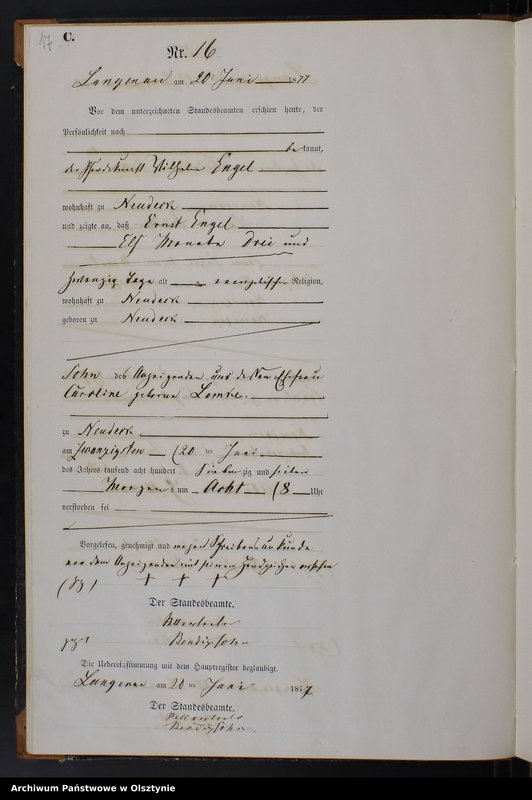 17
C.
Nr. 16
Langenau am 20 Juni 1877
Vor dem unterzeichneten Standesbeamten erschien heute, der
Persönlichkeit nach
bekannt,
der Pferdeknecht Wilhelm Engel
wohnhaft zu Neudeck
und zeigte an, daß Ernst Engel
Elf Monate Drei und
zwanzig Tage alt evangelischer Religion,
wohnhaft zu Neudeck
geboren zu Neudeck
Sohn des Anzeigenden und dessen Ehefrau
Caroline geborne Lemke.
zu Neudeck
am zwanzigsten (20 ten Juni
des Jahres tausend acht hundert Siebenzig und sieben
Morgens um Acht (8 Uhr
verstorben sei
Vorgelesen, genehmigt und wegen Schreibensunkunde
von dem Anzeigenden mit seinem Handzeichen versehen
+ + +
Der Standesbeamte.
gez.
Die Uebereinstimmung mit dem Hauptregister beglaubigt.
Langenau am 20 ten Juni 1877
Der Standesbeamte.
Archiwum Państwowe w Olsztynie